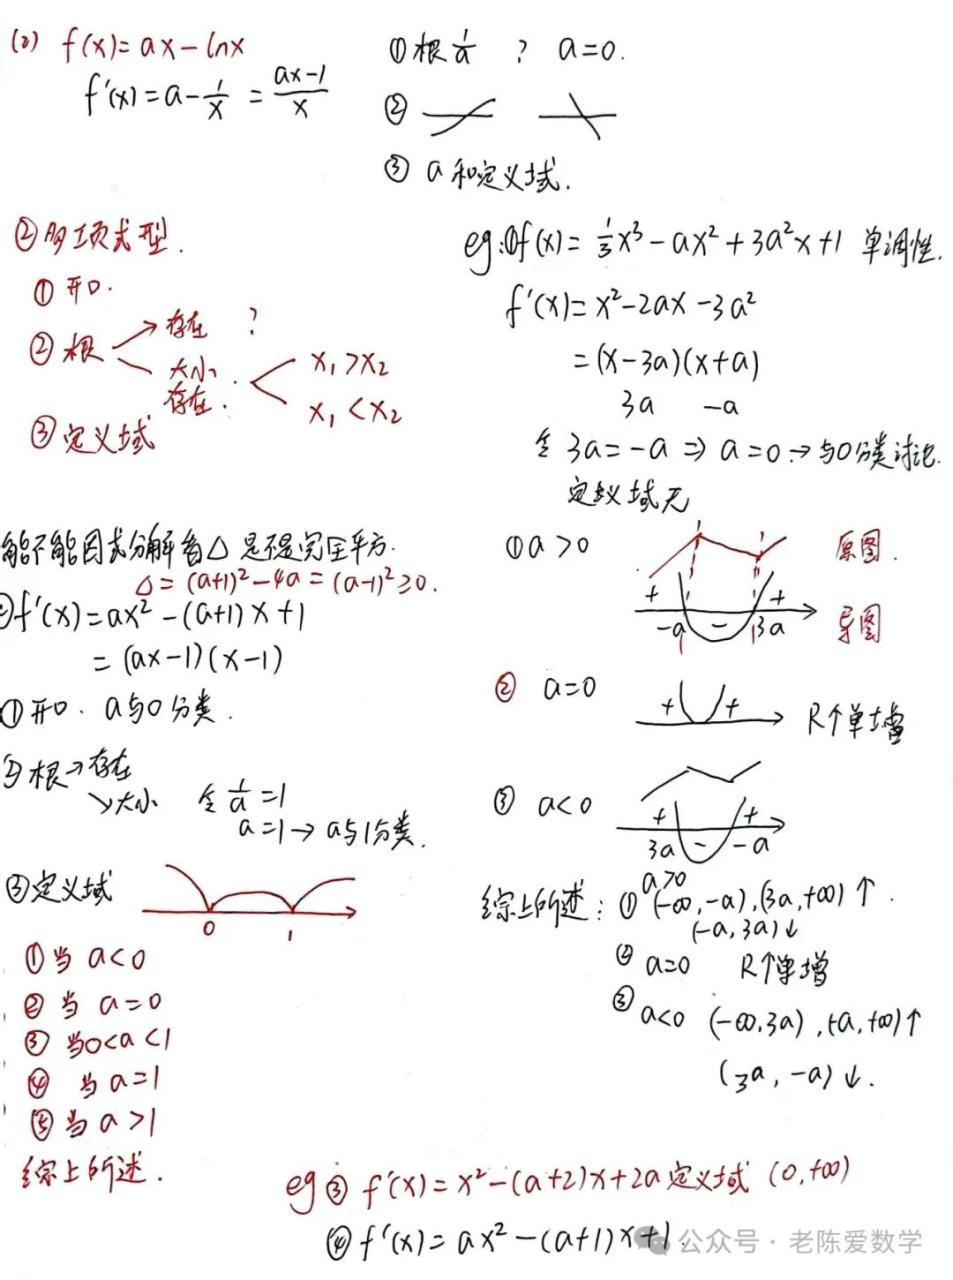 (2) f(x)=ax-lnx
f'(x)=a-1/x=(ax-1)/x
①根1/a ? a=0.
②
③ a和定义域.
②多项式型.
①开口.
②根 存在 ?
大小 存在. x₁>x₂
x₁<x₂
③定义域
eg:①f(x)=1/3x³-ax²+3a²x+1 单调性.
f'(x)=x²-2ax-3a²
=(x-3a)(x+a)
3a -a
令 3a=-a⇒a=0.→与0分类讨论.
定义域无
①a>0
+ - +
-a 3a
原图.
导图
② a=0
+ +
R↑单增
③ a<0
+ - +
3a -a
综上所述: ① a>0 (-∞,-a),(3a,+∞)↑.
(-a,3a)↓
② a=0 R↑单增
③ a<0 (-∞,3a),(-a,+∞)↑
(3a,-a)↓.
能不能因式分解看△是不是完全平方.
△=(a+1)²-4a=(a-1)²≥0.
②f'(x)=ax²-(a+1)x+1
=(ax-1)(x-1)
①开口. a与0分类.
②根→存在
↘大小 令1/a=1
a=1→a与1分类.
③定义域
0 1
①当 a<0
②当 a=0
③当0<a<1
④ 当a=1
⑤当a>1
综上所述.
eg ③ f'(x)=x²-(a+2)x+2a 定义域 (0,+∞)
④ f'(x)=ax²-(a+1)x+1.
公众号·老陈爱数学